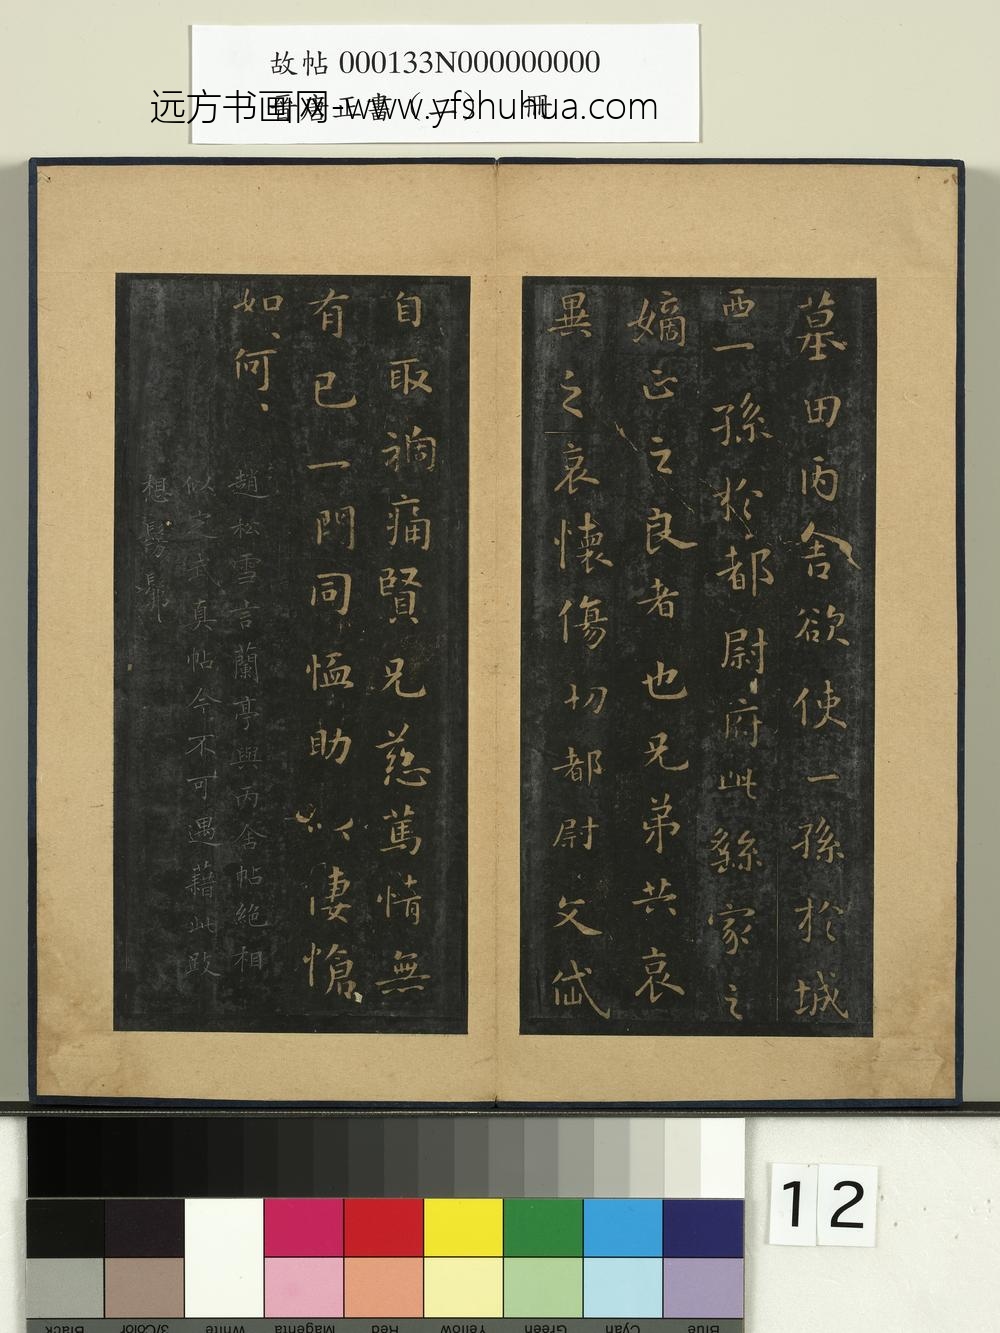 故帖 000133N000000000
远方书画网-www.yfshuhua.com
墓田丙舍欲使一孫於城
西一孫於都尉府此繇家之
嫡正之良者也兄弟共哀
異之哀懷傷切都尉文岱
自取禍痛賢兄慈篤情無
有已一門同恤助以悽愴
如何
趙松雪言蘭亭與丙舍帖絶相
似定武真帖今不可遇藉此敢
想髣髴
12
Black
3/Color
White
Magenta
Red
Yellow
Green
Cyan
Blue